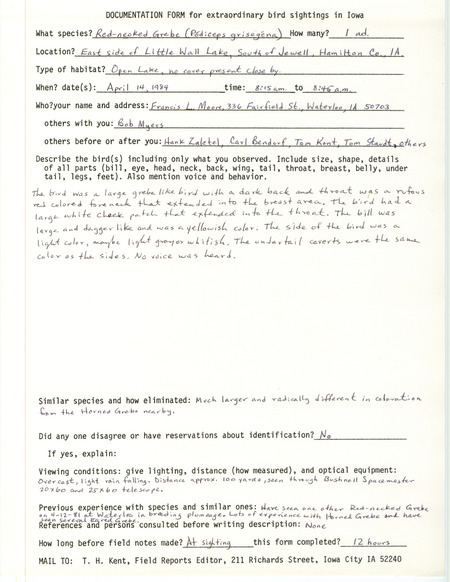 DOCUMENTATION FORM for extraordinary bird sightings in Iowa
What species? Red-necked Grebe (Podiceps grisegena) How many? 1 ad.
Location? East side of Little Wall Lake, South of Jewell, Hamilton Co., IA.
Type of habitat? Open Lake, no cover present close by.
When? date(s): April 14, 1984 time: 8:15 a.m. to 8:45 a.m.
Who?your name and address: Francis L. Moore, 336 Fairfield St., Waterloo, IA 50703
others with you: Bob Myers
others before or after you: Hank Zaletel, Carl Bendorf, Tom Kent, Tom Staudt, others
Describe the bird(s) including only what you observed. Include size, shape, details
of all parts (bill, eye, head, neck, back, wing, tail, throat, breast, belly, under
tail, legs, feet). Also mention voice and behavior.
The bird was a large grebe like bird with a dark back and throat was a rufous
red colored foreneck that extended into the breast area. The bird had a
large white cheek patch that extended into the throat. The bill was
large and dagger like and was a yellowish color. The side of the bird was a
light color, maybe light gray or whitish. The undertail coverts were the same
color as the sides. No voice was heard.
Similar species and how eliminated: Much larger and radically different in coloration
from the Horned Grebe nearby.
Did any one disagree or have reservations about identification? No
If yes, explain:
Viewing conditions: give lighting, distance (how measured), and optical equipment:
Overcast, light rain falling. Distance approx. 100 yards, seen through Bushnell Spacemaster
20x60 and 25x60 telescope.
Previous experience with species and similar ones: Have seen one other Red-necked Grebe
on 4-12-81 at Waterloo in breeding plumage. Lots of experience with Horned Grebe and have
seen several Eared Grebe.
References and persons consulted before writing description: None
How long before field notes made? At sighting this form completed? 12 hours
MAIL TO: T. H. Kent, Field Reports Editor, 211 Richards Street, Iowa City IA 52240